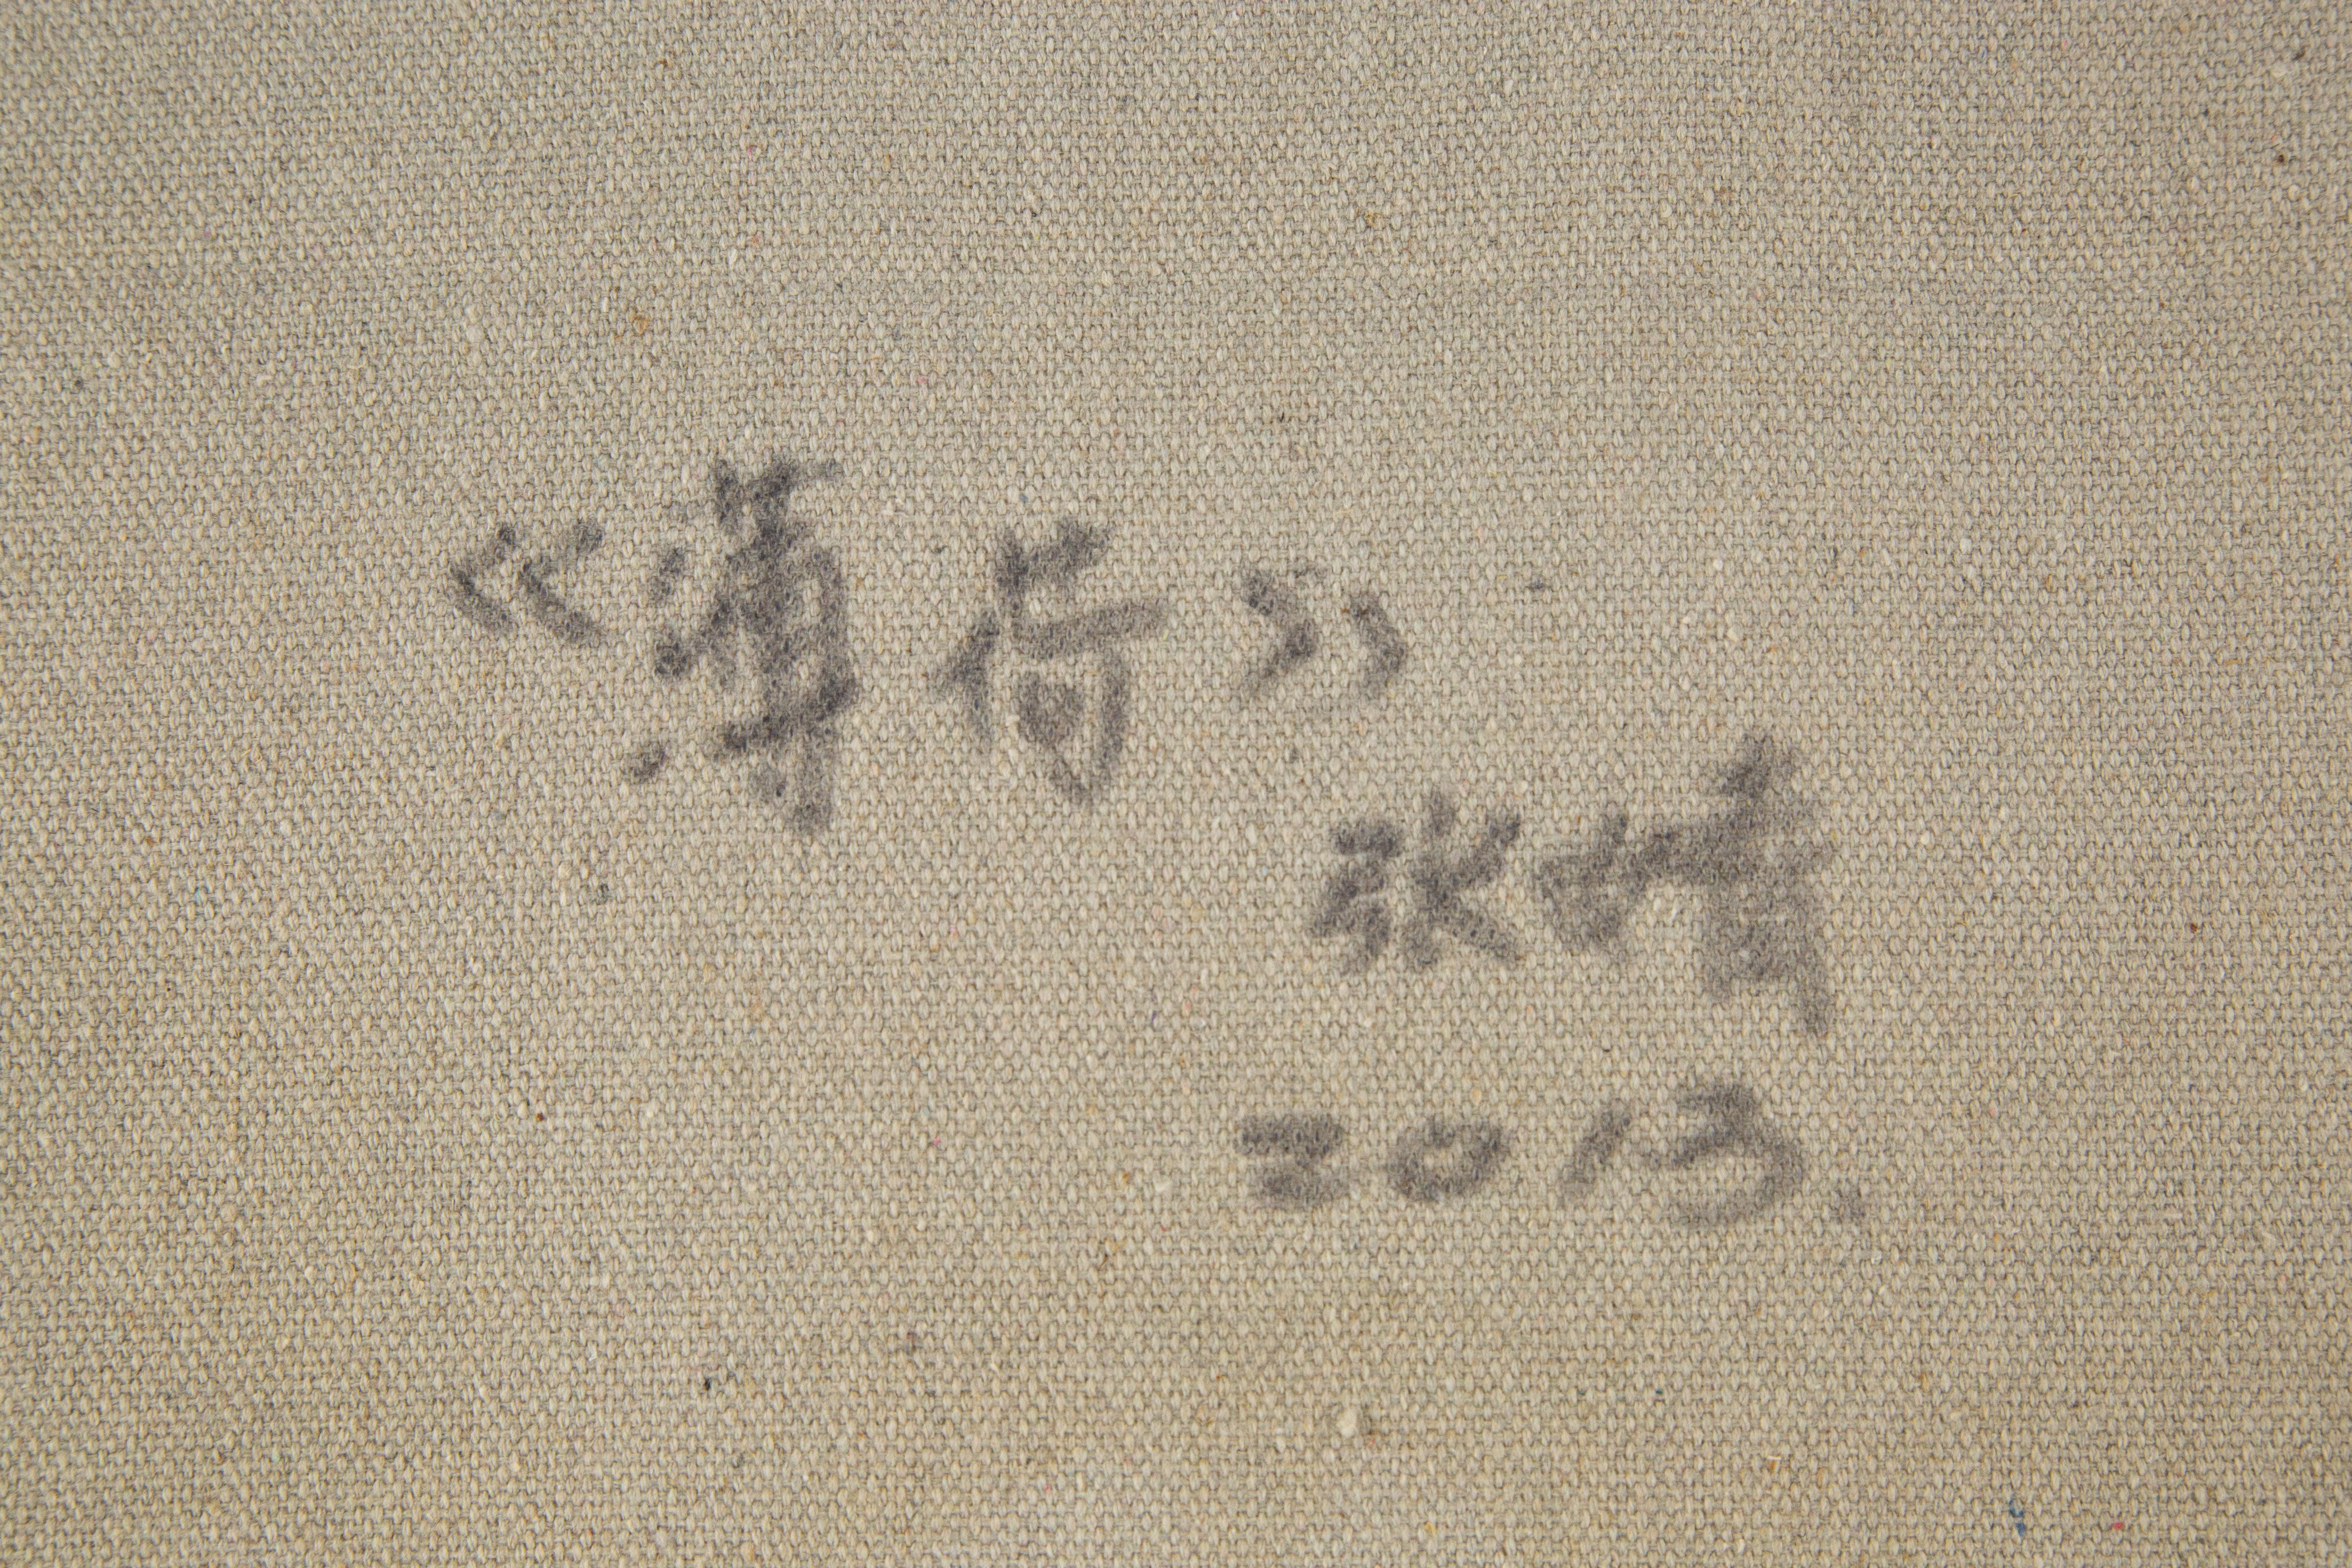 《薄荷》
张晴
2013.